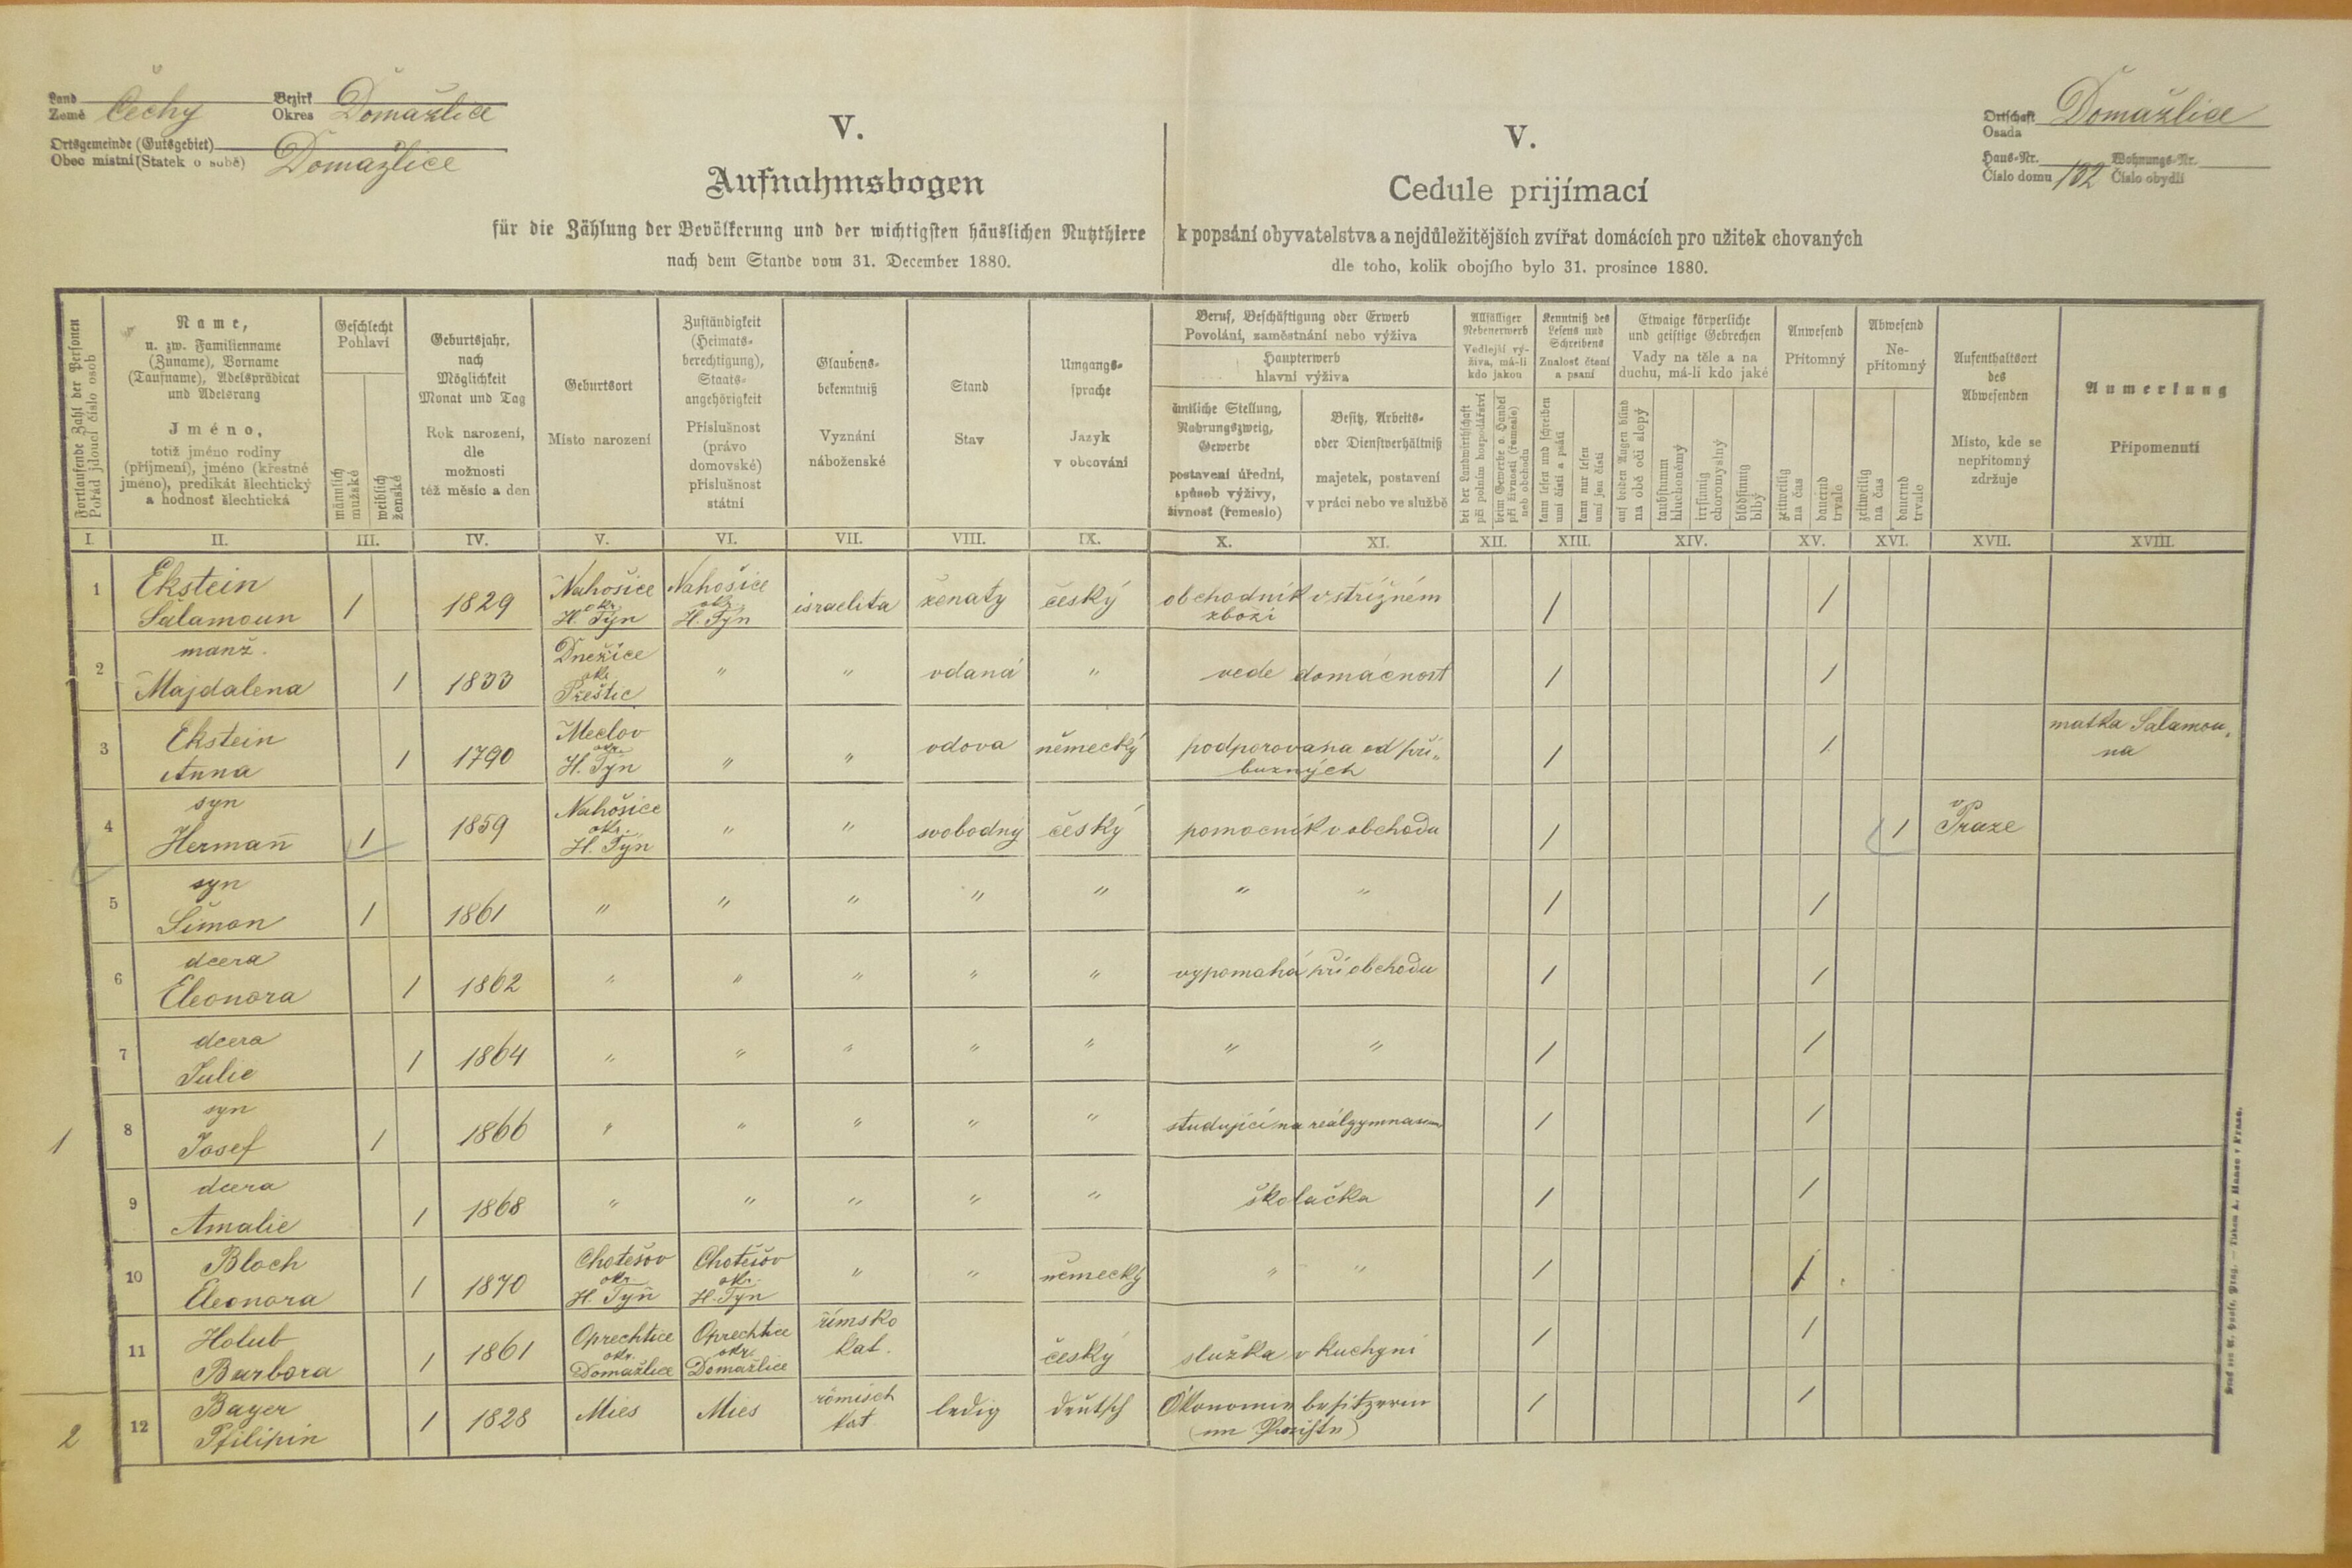 Land
Země Čechy
Bezirk
Okres Domažlice
Ortsgemeinde (Gutsgebiet)
Obec místní (Statek o sobě) Domažlice
V.
Aufnahmsbogen
für die Zählung der Bevölkerung und der wichtigsten häuslichen Nutzthiere
nach dem Stande vom 31. December 1880.
V.
Cedule prijímací
k popsání obyvatelstva a nejdůležitějších zvířat domácích pro užitek chovaných
dle toho, kolik obojího bylo 31. prosince 1880.
Ortschaft
Osada Domažlice
Haus-Nr.
Číslo domu 132
Wohnungs-Nr.
Číslo obydlí
Fortlaufende Zahl der Personen
Pořád jdoucí číslo osob
Name,
u. zw. Familienname
(Zuname), Vorname
(Taufname), Adelsprädicat
und Adelsrang
Jméno,
totiž jméno rodiny
(příjmení), jméno (křestné
jméno), predikát šlechtický
a hodnosť šlechtická
Geschlecht
Pohlaví
männlich
mužské
weiblich
ženské
Geburtsjahr,
nach
Möglichkeit
Monat und Tag
Rok narození,
dle
možnosti
též měsíc a den
Geburtsort
Místo narození
Zuständigkeit
(Heimats-
berechtigung),
Staats-
angehörigkeit
Příslušnost
(právo
domovské)
příslušnost
státní
Glaubens-
bekenntniß
Vyznání
náboženské
Stand
Stav
Umgangs-
sprache
Jazyk
v obcování
Beruf, Beschäftigung oder Erwerb
Povolání, zaměstnání nebo výživa
Haupterwerb
hlavní výživa
ämtliche Stellung,
Nahrungszweig,
Gewerbe
postavení úřední,
spůsob výživy,
živnosť (řemeslo)
Besitz, Arbeits-
oder Dienstverhältniß
majetek, postavení
v práci nebo ve službě
Allfälliger
Nebenerwerb
Vedlejší vý-
živa, má-li
kdo jakou
bei der Landwirthschaft
při polním hospodářství
beim Gewerbe o. Handel
při živnosti (řemesle)
neb obchodu
Kenntniß des
Lesens und
Schreibens
Znalosť čtení
a psaní
kann lesen und schreiben
umí čísti a psáti
kann nur lesen
umí jen čísti
Etwaige körperliche
und geistige Gebrechen
Vady na těle a na
duchu, má-li kdo jaké
auf beiden Augen blind
na obě oči slepý
taubstumm
hluchoněmý
irrsinnig
choromyslný
blödsinnig
blbý
Anwesend
Přítomný
zeitweilig
na čas
dauernd
trvale
Abwesend
Ne-
přítomný
zeitweilig
na čas
dauernd
trvale
Aufenthaltsort
des
Abwesenden
Místo, kde se
nepřítomný
zdržuje
Anmerkung
Připomenutí
I. II. III. IV. V. VI. VII. VIII. IX. X. XI. XII. XIII. XIV. XV. XVI. XVII. XVIII.
1 Ekstein
Salamoun 1 1829 Nahošice
okr.
H. Týn Nahošice
okr.
H. Týn israelita ženatý český obchodník v střižném
zboží / /
2 manž.
Majdalena 1 1833 Dnešice
okr
Přeštic " " vdaná " vede domácnost / /
3 Ekstein
Anna 1 1790 Meclov
okr.
H. Týn " " vdova německý podporovana od pří„
buzných / / matka Salamou„
na
4 syn
Hermañ 1 1859 Nahošice
okr.
H. Týn " " svobodný český pomocník v obchodu / 1 v
Praze
5 syn
Šimon 1 1861 " " " " " " " / /
6 dcera
Eleonora 1 1862 " " " " " vypomahá při obchodu / /
7 dcera
Julie 1 1864 " " " " " " " / /
1 8 syn
Josef 1 1866 " " " " " studující na reálgymnasium / /
9 dcera
Amalie 1 1868 " " " " " školačka / /
10 Bloch
Eleonora 1 1870 Chotešov
okr.
H. Týn Chotešov
okr.
H. Týn " " německý " " / /
11 Holub
Barbora 1 1861 Oprechtice
okr.
Domažlice Oprechtice
okr.
Domažlice římsko
kat. český služka v kuchyni / /
2 12 Bayer
1 1828 Mies Mies römisch
kat ledig deutsch Ökonomie besitzerin
/ /